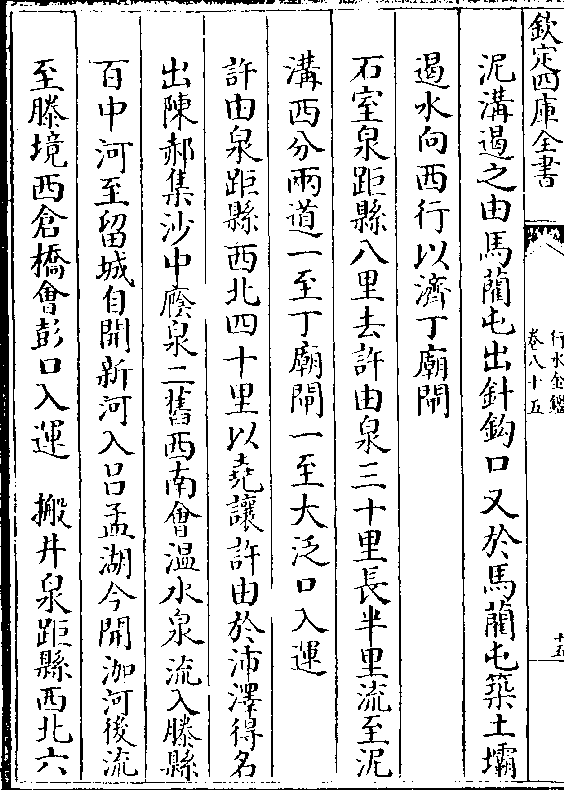 欽定四庫全書
行水金鑑
卷八十五
十五
泥溝遏之由馬蘭屯出針鈎口又於馬蘭屯築土壩
遏水向西行以濟丁廟閘
石室泉距縣八里去許由泉三十里長半里流至泥
溝西分兩道一至丁廟閘一至大泛口入運
許由泉距縣西北四十里以堯讓許由於沛澤得名
出陳郝集沙中廢泉二舊西南會溫水泉流入滕縣
百中河至留城自開新河入呂孟湖今開泇河後流
至滕境西倉橋會彭口入運　搬井泉距縣西北六